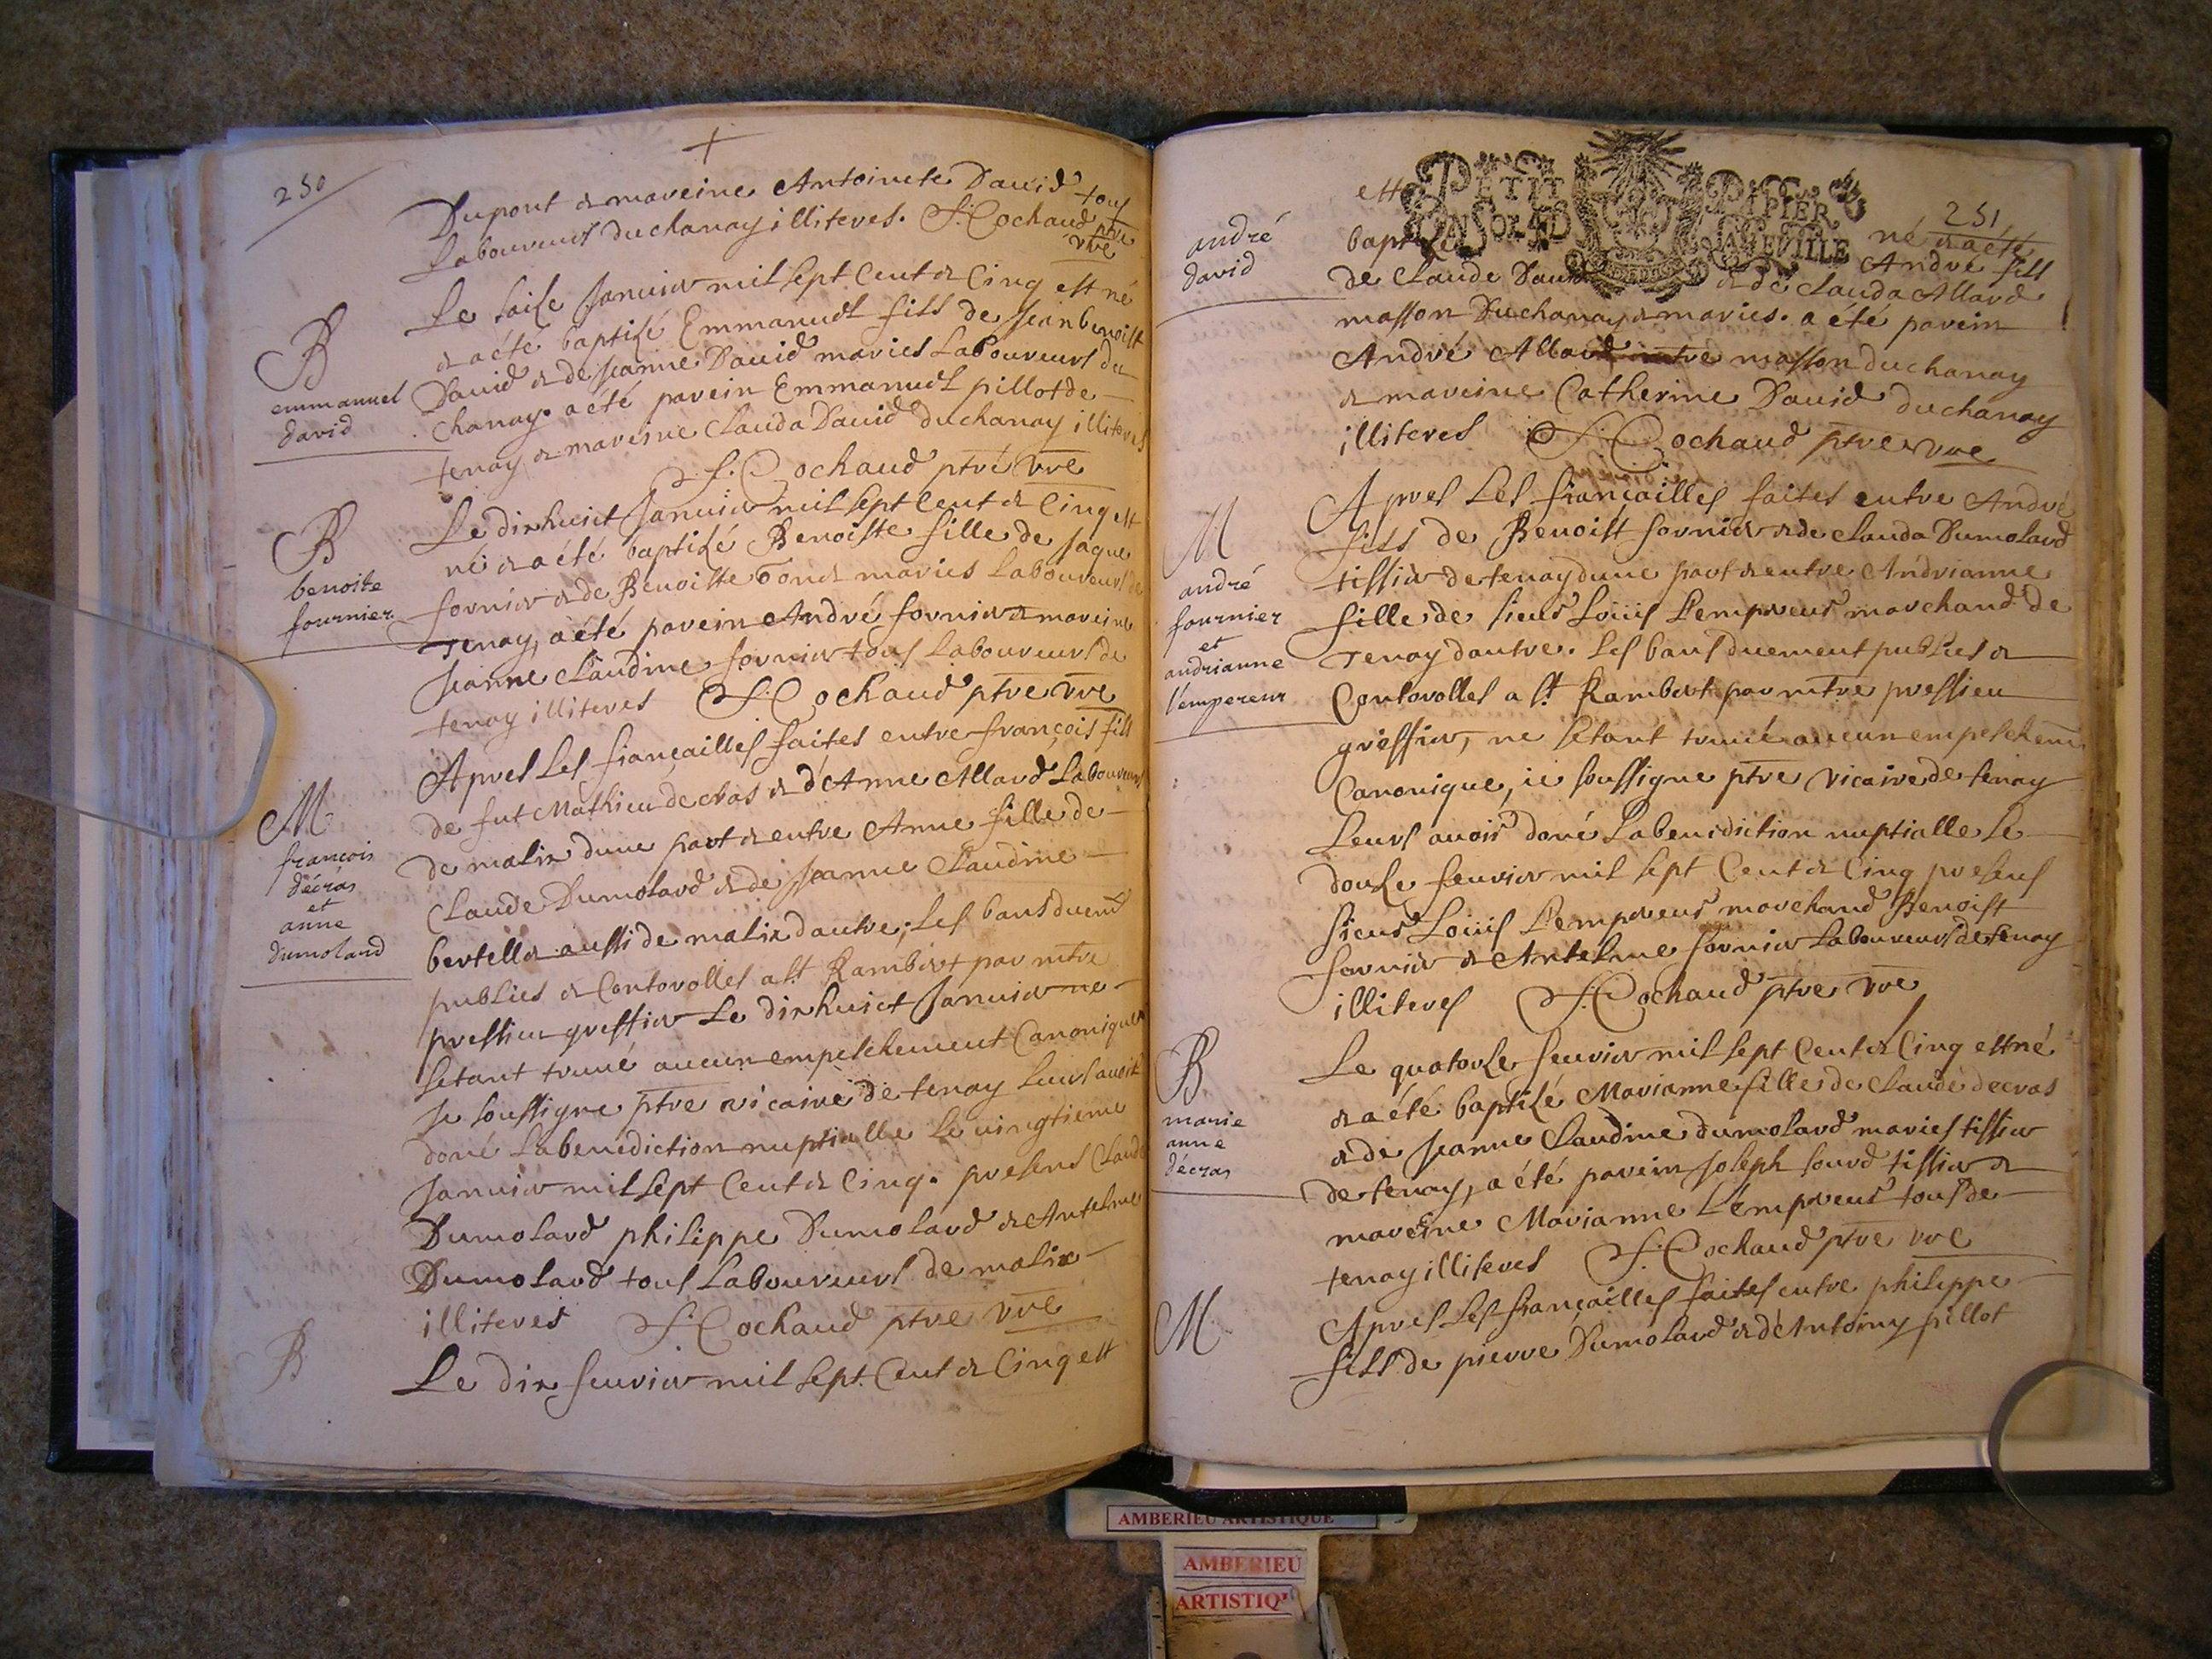 250
+
Dupont & mareine Antoinete Dauid tous
Laboureurs du chanay illiteres. F. Cochaud ptre
vre
B
emmanuel
david
Le saize Januier mil sept Cent & Cinq est né
& a été baptizé Emmanuel fils de Jean benoist
Dauid & de Jeanne Dauid maries Laboureurs du
Chanay. a été parein Emmanuel pillot de
tenay & mareine Clauda Dauid du chanay illiteres
F. Cochaud ptre vre
B
benoite
fournier
Le dixhuict Januier mil sept Cent & Cinq est
né & a été baptizé Benoiste fille de Jaque
fornier & de Benoiste maries Laboureurs de
Tenay, a été parein André fornier & mareine
Jeanne Claudine fornier tous Laboureurs de
tenay illiteres F. Cochaud ptre vre
M
francois
décras
et
anne
dumoland
Apres Les fiançailles faites entre françois fils
de fut Mathieu decras & d'Anne Allard Laboureurs
de malix dune part & entre Anne fille de
Claude Dumolard & de Jeanne Claudine
bertelle aussi de malix dautre; Les bans duemt
publies & Controlles a st Rambert par mtre
pressieu greffier Le dixhuict Januier ne
sétant trouué aucun empeschement Canonique
Je soussigne ptre vicaire de tenay Leurs auois
doné La benediction nuptialle Le uingtieme
Januier mil sept Cent & Cinq. presens Claude
Dumolard philippe Dumolard & Antelme
Dumolard tous Laboureurs de malix
illiteres F. Cochaud ptre vre
B
Le dix feurier mil sept Cent & Cinq est
PETIT PAPIER
251
andré
david
né & a été
bapt André fils
de Claude Dauid & de Clauda Allard
masson Du chanay & maries. a été parein
André Allard masson du chanay
& mareine Catherine Dauid du chanay
illiteres F. Cochaud ptre & vre
M
andré
fournier
et
andrianne
l'empereur
Apres Les fiançailles faites entre André
fils de Benoist fornier & de Clauda Dumolard
tissier de tenay dune part & entre Andrianne
fille de sieur Loüis Lempereur marchand de
Tenay dautre. Les bans duement publies &
Controlles a st Rambert par mtre pressieu
greffier, ne sétant trouué aucun empeschemt
Canonique, ie soussigne ptre vicaire de tenay
Leurs auois doné La benediction nuptialle Le
douze feurier mil sept Cent & Cinq presens
sieur Loüis Lempereur marchand Benoist
fornier & Antelme fornier Laboureurs de tenay
illiteres F. Cochaud ptre vre
B
marie
anne
décras
Le quatorze feurier mil sept Cent & Cinq est né
& a été baptizé Marianne fille de Claude decras
& de Jeanne Claudine dumolard maries tissier
de tenay, a été parein Joseph sourd tissier &
mareine Marianne Lempereur tous de
tenay illiteres F. Cochaud ptre vre
M
Apres Les fiançailles faites entre philippe
fils de pierre Dumolard & d'Antoiny pillot
AMBERIEU ARTISTIQUE
AMBERIEU
ARTISTIQ'